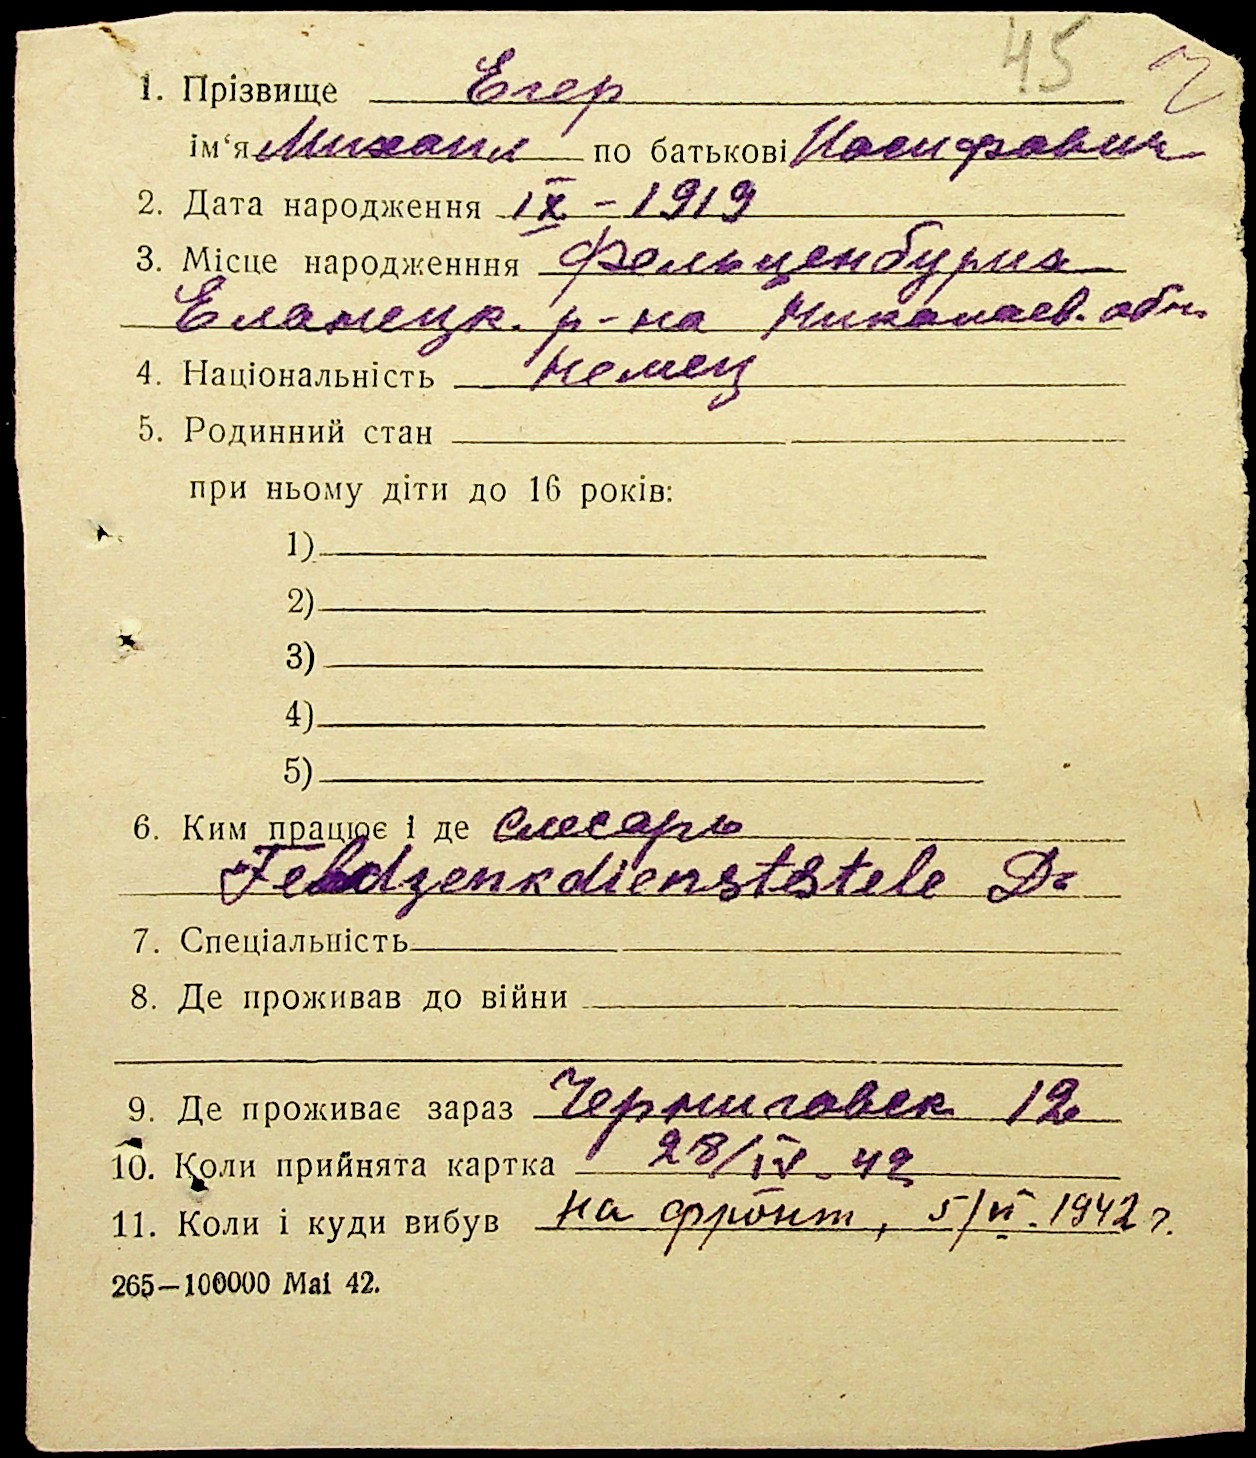 45
1. Прізвище Егер
ім‘я Михаил по батькові Иосифович
2. Дата народження IX – 1919
3. Місце народженння Фельценбурих
Еланецк. р-на Николаев. обл.
4. Національність немец
5. Родинний стан
при ньому діти до 16 років:
1)
2)
3)
4)
5)
6. Ким працює і де слесарь
Feldzenkdienststele
7. Спеціальність
8. Де проживав до війни
9. Де проживає зараз Черниговск 12
10. Коли прийнята картка 28/IV-42
11. Коли і куди вибув на фронт, 5/VI.1942 г.
265—100000 Mai 42.